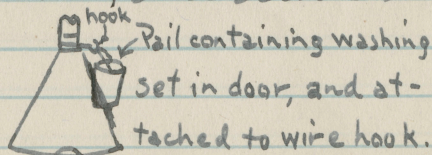 hook
Pail containing washing
set in door, and at-
tached to wire hook.